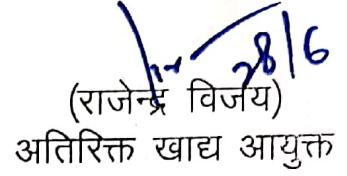 28/6
(राजेन्द्र विजय)
अतिरिक्त खाद्य आयुक्त